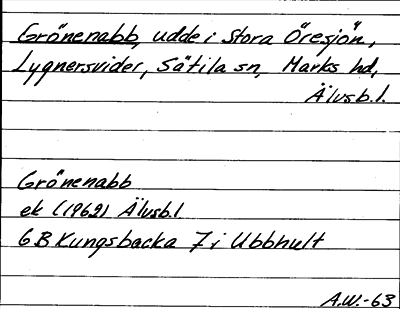 Grönenabb, udde i Stora Öresjön,
Lygnersvider, Sätila sn, Marks hd,
Älvsb.l.
Grönenabb
ek (1962) Älvsb.l
6B Kungsbacka 7i Ubbhult
A.W.-63